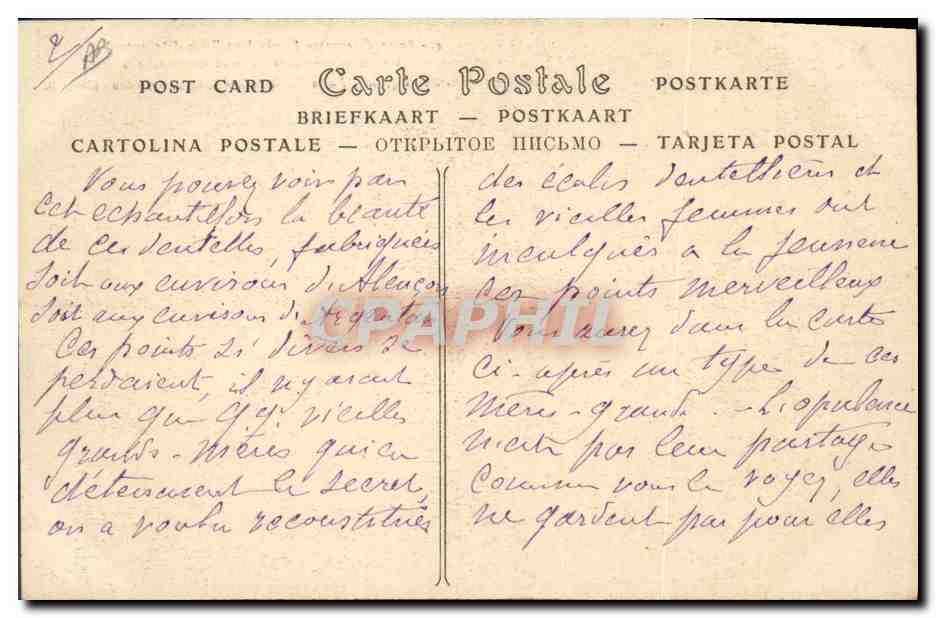 2/ AB
POST CARD Carte Postale POSTKARTE
BRIEFKAART — POSTKAART
CARTOLINA POSTALE — ОТКРЫТОЕ ПИСЬМО — TARJETA POSTAL
Vous pouvez voir par
cet echantillon la beauté
de ces dentelles, fabriquées
soit aux environs d'Alençon
soit aux environs d'Argentan
Ces points si divers se
perdaient, il n'y avait
plus que q.q. vieilles
grands-mères qui en
détenaient le secret,
on a voulu reconstituer
des écoles dentellières et
les vieilles femmes ont
inculqués a la jeunesse
ces points merveilleux
Vous aurez dans la carte
ci-après un type de ces
mères-grands. L'opulence
n'est pas leur partage
comme vous le voyez, elles
ne gardent pas pour elles
CPAPHIL